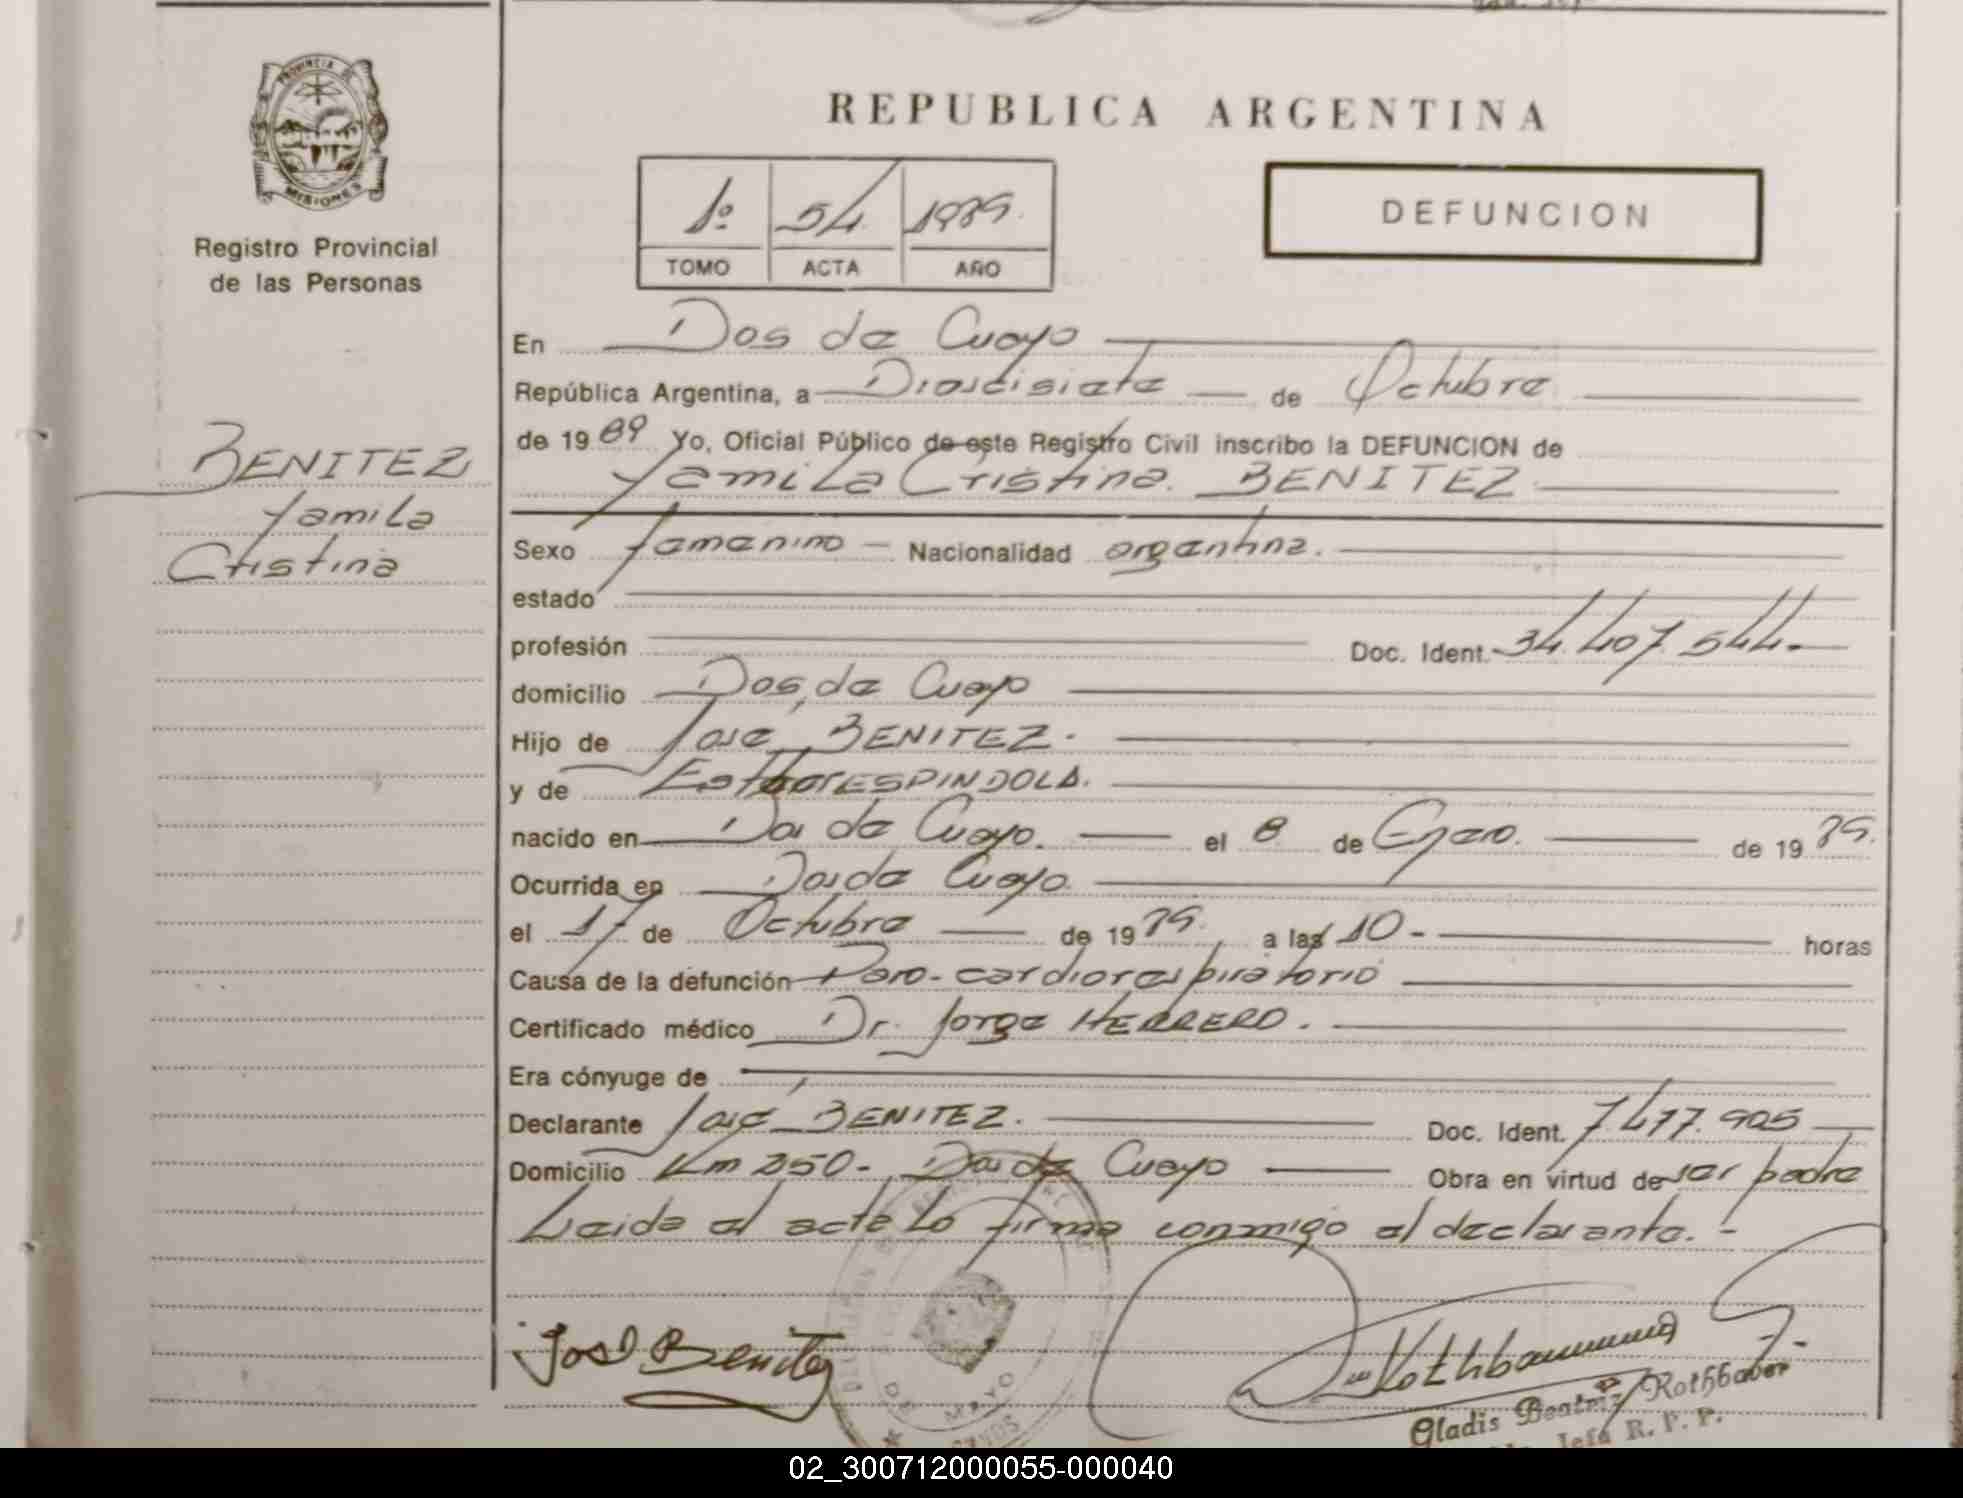 PROVINCIA DE
MISIONES
Registro Provincial
de las Personas
BENITEZ
Yamila
Cristina
REPUBLICA ARGENTINA
1º 54 1989
TOMO ACTA AÑO
DEFUNCION
En Dos de Mayo
República Argentina, a Diescisiete de Octubre
de 1989 Yo, Oficial Público de este Registro Civil inscribo la DEFUNCION de
Yamila Cristina BENITEZ
Sexo femenino Nacionalidad argentina.
estado
profesión Doc. Ident. 34.407.544.-
domicilio Dos de Mayo
Hijo de José BENITEZ.
y de Esther ESPINDOLA.
nacido en Dos de Mayo. el 8 de Enero. de 1989.
Ocurrida en Dos de Mayo.
el 17 de Octubre de 1989. a las 10- horas
Causa de la defunción Paro-cardiorespiratorio
Certificado médico Dr. Jorge HERRERO.
Era cónyuge de
Declarante José BENITEZ. Doc. Ident. 7.477.905
Domicilio Km 250- Dos de Mayo Obra en virtud de ser padre
Leida el acta lo firma conmigo el declarante.-
José Benitez
DE MAYO
Gladis Beatriz Rothbauer
Jefa R. P. P.
02_300712000055-000040